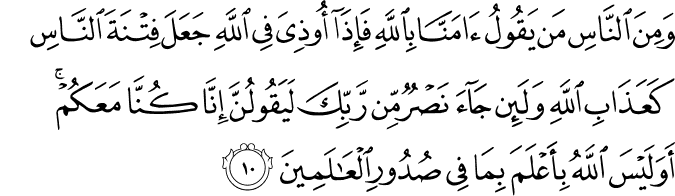 وَمِنَ ٱلنَّاسِ مَن يَقُولُ ءَامَنَّا بِٱللَّهِ فَإِذَآ أُوذِىَ فِى ٱللَّهِ جَعَلَ فِتْنَةَ ٱلنَّاسِ
كَعَذَابِ ٱللَّهِ وَلَئِن جَآءَ نَصْرٌ مِّن رَّبِّكَ لَيَقُولُنَّ إِنَّا كُنَّا مَعَكُمْ ۚ
أَوَلَيْسَ ٱللَّهُ بِأَعْلَمَ بِمَا فِى صُدُورِ ٱلْعَـٰلَمِينَ ١٠